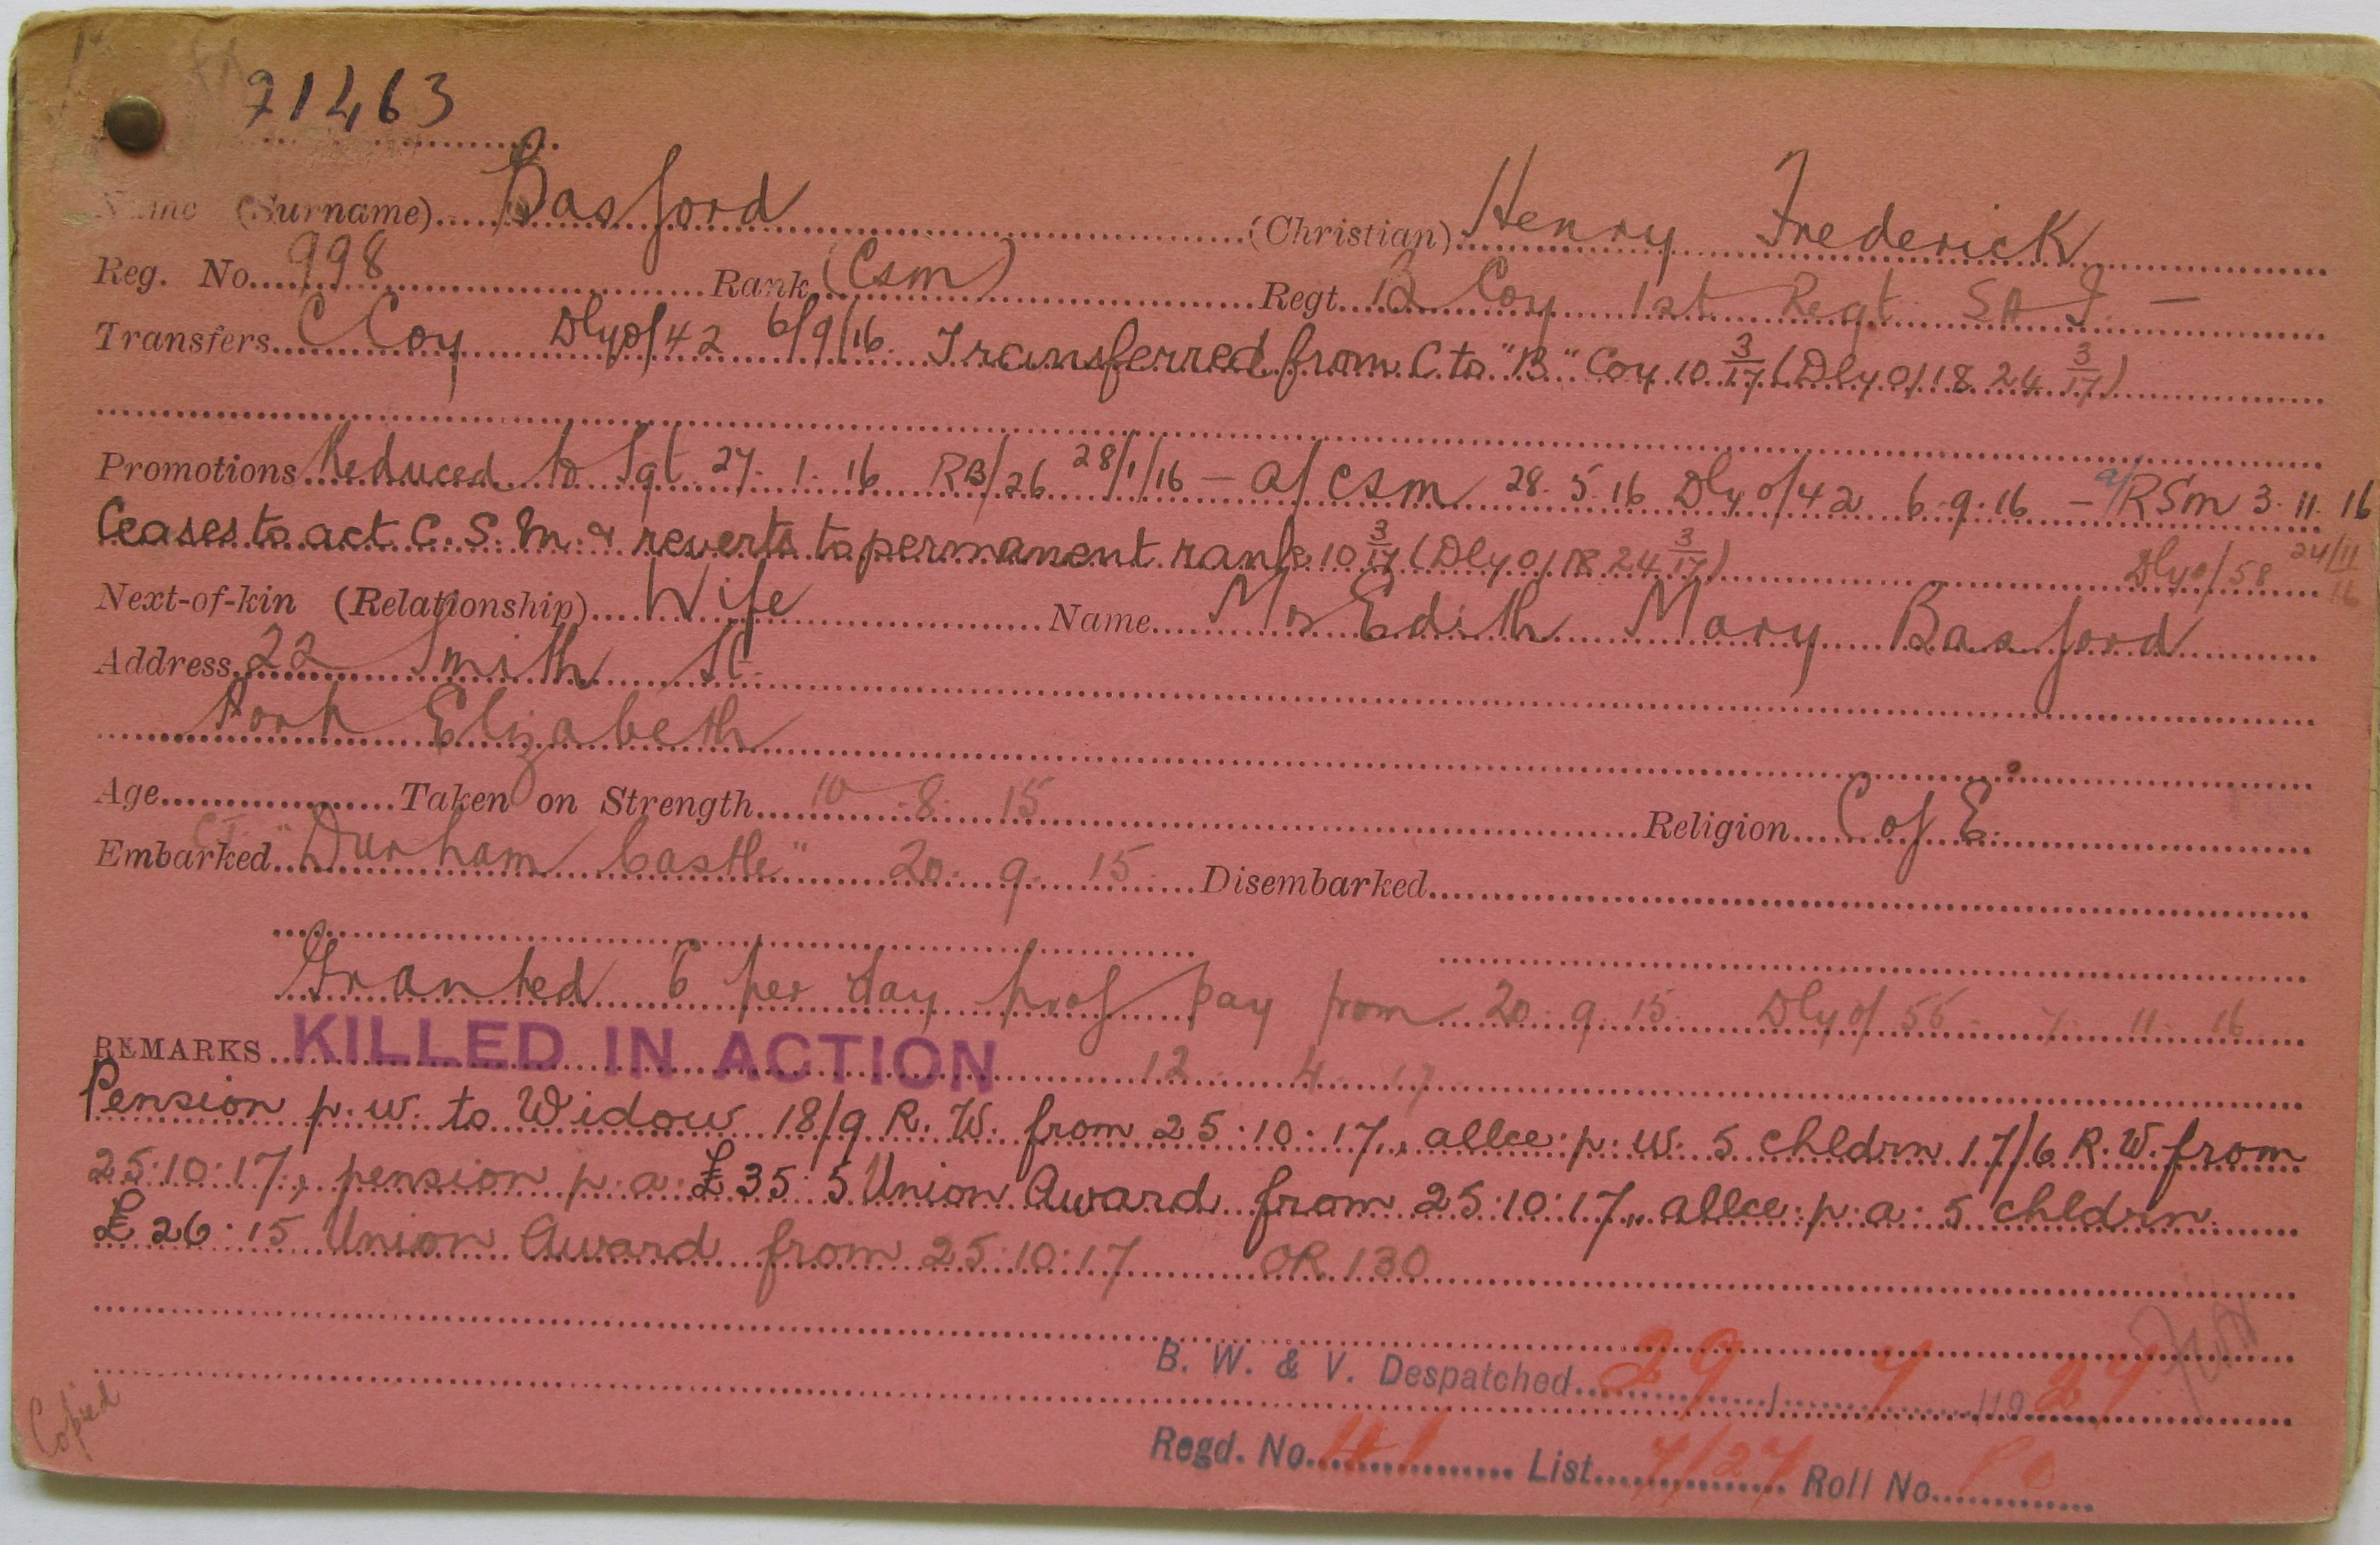 71463
Name (Surname) Basford (Christian) Henry Frederick
Reg. No. 998 Rank (Csm) Regt. B Coy 1st Regt SAI —
Transfers C Coy Dlyo/42 6/9/16. Transferred from C to "B" Coy 10 3/17 (Dly O/18 24 3/17)
Promotions Reduced to Sgt 27. 1. 16 RB/26 28/1/16 — a/ CSM 28. 5. 16 Dly o/42 6.9.16 — a/RSM 3. 11. 16
Ceases to act C. S. M. & reverts to permanent rank 10 3/17 (Dly O/18 24 3/17) Dlyo/58 24/11/16
Next-of-kin (Relationship) Wife Name Mrs Edith Mary Basford
Address 22 Smith St.
Port Elizabeth
Age Taken on Strength 10 . 8. 15 Religion C of E.
Embarked "Durham Castle" 20. 9. 15 Disembarked
Granted 6 per day prof pay from 20. 9. 15. Dlyo/ 55 7. 11. 16
REMARKS KILLED IN ACTION 12. 4. 17
Pension p. w. to Widow 18/9 R. W. from 25:10:17,, allce: p: w: 5 chldrn 17/6 R. W. from
25:10:17,, pension p. a: £35: 5 Union Award from 25:10:17,, allce: p: a: 5 chldrn
£26:15 Union Award from 25:10:17 OR 130
B. W. & V. Despatched 29 / 7 /19 27
Copied
Regd. No. 41 List 7/27 Roll No.